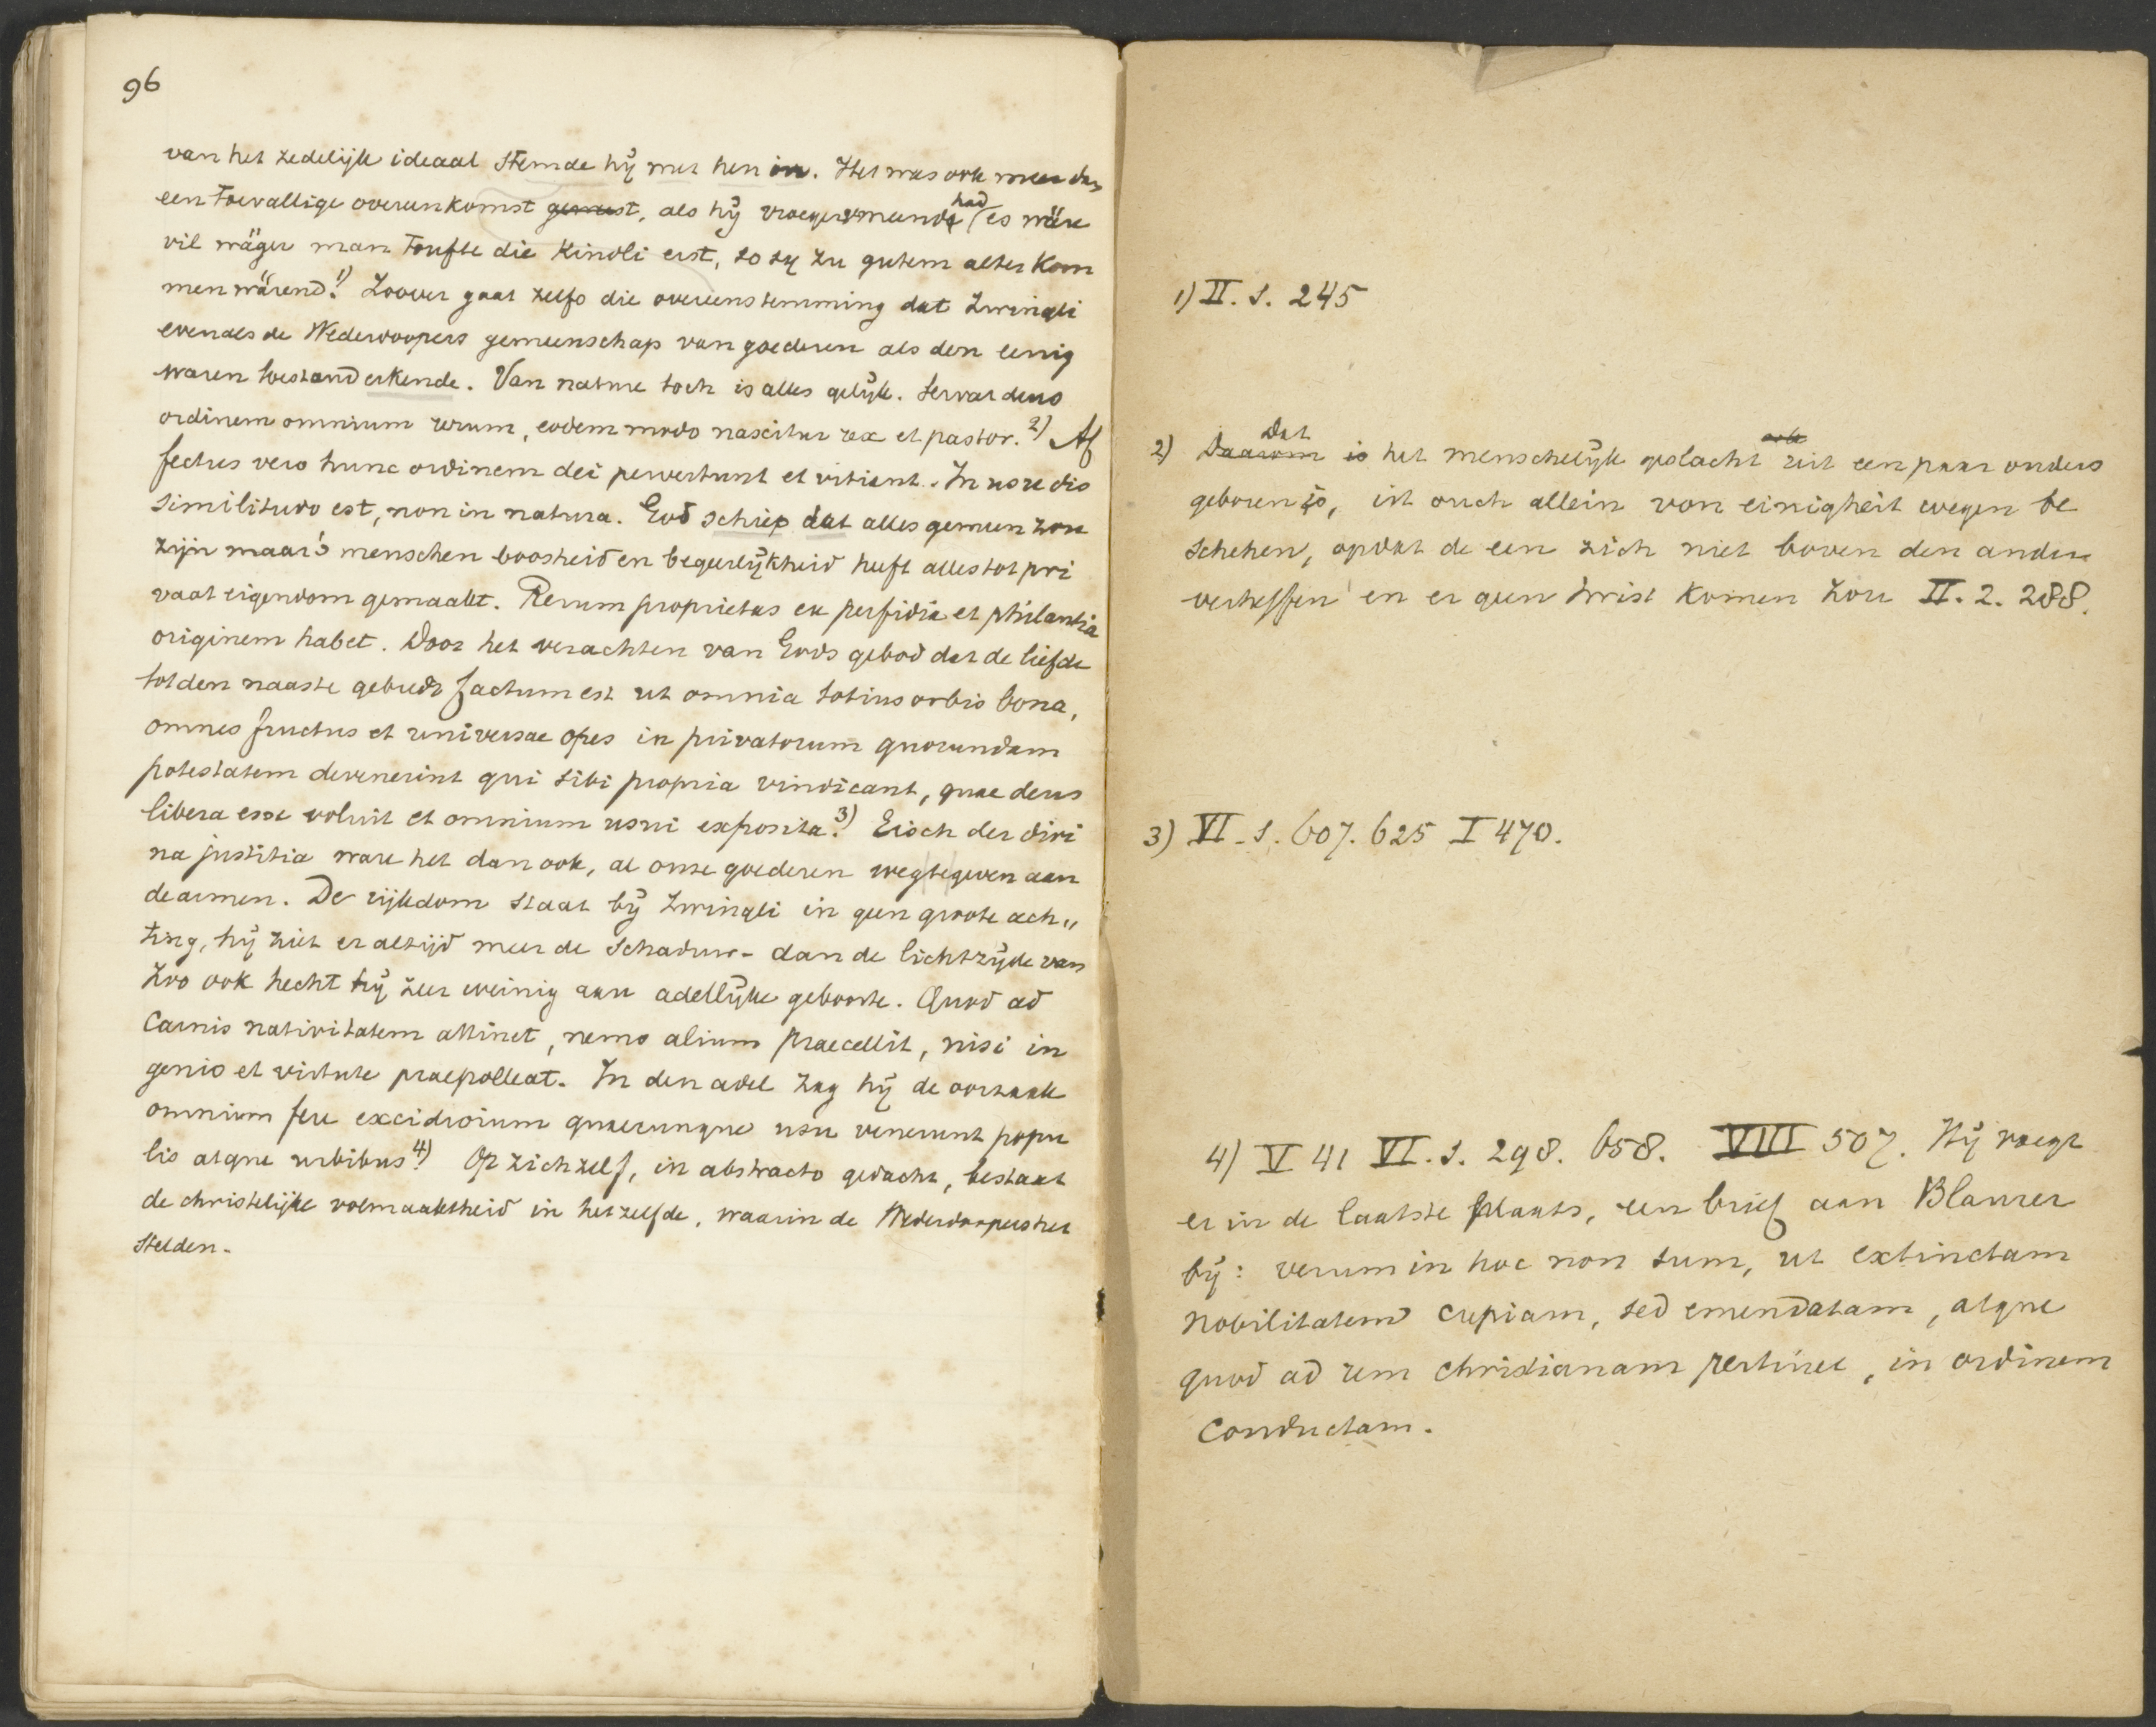 96
van het zedelijk ideaal stemde hij met hen in. Het was ook meer dan
een toevallige overeenkomst geweest, als hij vroeger meende had es wäre
vil wäger man toufte die kindli erst, so sy zu gutem alter kom
men wärend. 1) Zoover gaat zelfs die overeenstemming dat Zwingli
evenals de Wederdoopers gemeenschap van goederen als den eenig
waren toestand erkende. Van nature toch is alles gelijk. Servat deus
ordinem omnium rerum, eodem modo nascitur rex et pastor. 2) Af
fectus vero hunc ordinem dei pervertunt et vitiant. In usu dis
similitudo est, non in natura. God schiep dat alles gemeen zou
zijn maar 's menschen boosheid en begeerlijkheid heeft alles tot pri
vaat eigendom gemaakt. Rerum proprietas ex perfidia et philautia
originem habet. Door het verachten van Gods gebod dat de liefde
tot den naaste gebiedt factum est ut omnia totius orbis bona,
omnes fructus et universae opes in privatorum quorundam
potestatem devenerint qui sibi propria vindicant, quae deus
libera esse voluit et omnium usui exposita. 3) Eisch der divi
na justitia ware het dan ook, al onze goederen wegtegeven aan
de armen. De rijkdom staat bij Zwingli in geen groote ach„
ting, hij ziet er altijd meer de schaduw- dan de lichtzijde van
Zoo ook hecht hij zeer weinig aan adellijke geboorte. Quod ad
carnis nativitatem attinet, nemo alium praecellit, nisi in
genio et virtute praepolleat. In den adel zag hij de oorzaak
omnium fere excidiorum quaecunque usu venerunt popu
lis atque urbibus 4). Op zichzelf, in abstracto gedacht, bestaat
de christelijke volmaaktheid in hetzelfde, waarin de Wederdoopers het
stelden.
1) II. 1. 245
2) Daarom Dat is het menschelijk geslacht ook uit een paar ouders
geboren is, ist ouch allein von einigheit wegen be
schehen, opdat de een zich niet boven den andere
verheffen en er geen twist komen zou II. 2. 288.
3) VI. 1. 607. 625 I 470.
4) V 41 VI. 1. 298. 658. VIII 507. Hij voegt
er in de laatste plaats, een brief aan Blaurer
bij: verum in hoc non sum, ut extinctam
nobilitatem cupiam, sed emendatam, atque
quod ad rem christianam pertinet, in ordinem
conductam.